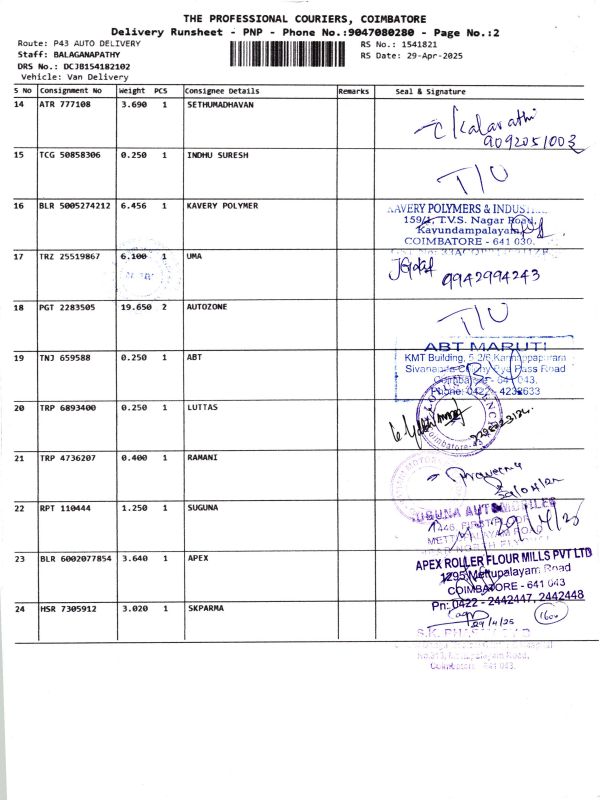 THE PROFESSIONAL COURIERS, COIMBATORE
Delivery Runsheet - PNP - Phone No.:9047080280 - Page No.:2
Route: P43 AUTO DELIVERY
RS No.: 1541821
Staff: BALAGANAPATHY
RS Date: 29-Apr-2025
DRS No.: DCJB154182102
Vehicle: Van Delivery
S No Consignment No Weight PCS Consignee Details Remarks Seal & Signature
14 ATR 777108 3.690 1 SETHUMADHAVAN
Kalarathi
9092051003
15 TCG 50858306 0.250 1 INDHU SURESH
T/U
16 BLR 5005274212 6.456 1 KAVERY POLYMER
KAVERY POLYMERS & INDUS
159/1, T.V.S. Nagar Road,
Kavundampalayam,
COIMBATORE - 641 030.
17 TRZ 25519867 6.100 1 UMA
9942994243
18 PGT 2283505 19.650 2 AUTOZONE
T/U
ABT MARUTI
19 TNJ 659588 0.250 1 ABT
KMT Building,
Pass Road
Coimbatore - 641 043.
Phone: 0422 - 4232633
20 TRP 6893400 0.250 1 LUTTAS
21 TRP 4736207 0.400 1 RAMANI
22 RPT 110444 1.250 1 SUGUNA
SUGUNA AUTOMOBILES
1446, FIRST FLOOR
METTUPALAYAM ROAD
29/4/25
23 BLR 6002077854 3.640 1 APEX
APEX ROLLER FLOUR MILLS PVT LTD
1295 Mettupalayam Road
COIMBATORE - 641 043
Pn: 0422 - 2442447, 2442448
24 HSR 7305912 3.020 1 SKPARMA
29/4/25
1600
S.K. PHARMA
Coimbatore - 641 043.